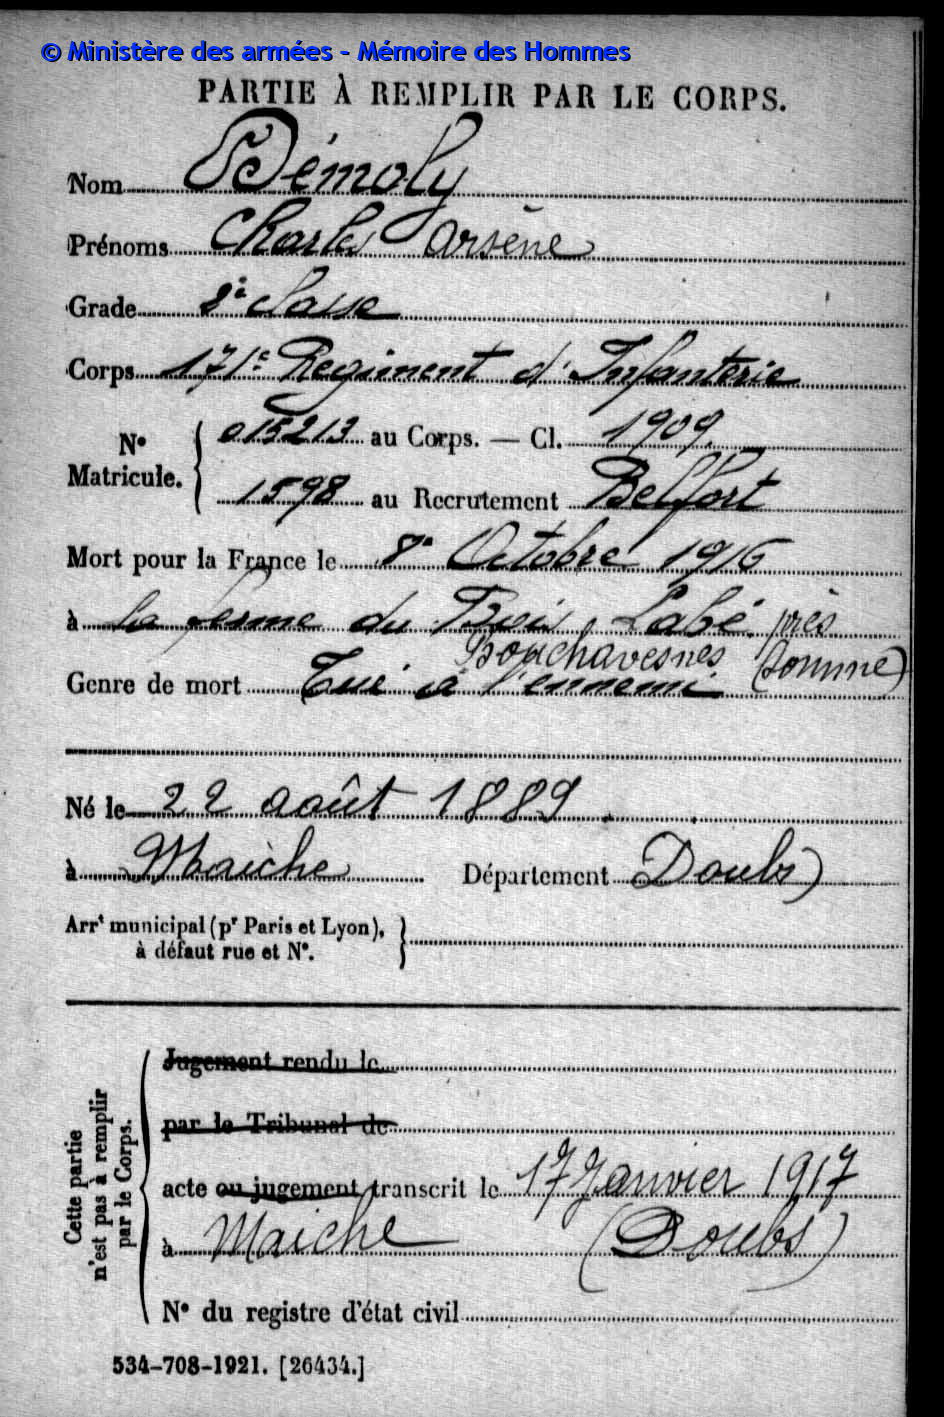 © Ministère des armées - Mémoire des Hommes
PARTIE À REMPLIR PAR LE CORPS.
Nom Démoly
Prénoms Charles Arsène
Grade 2e classe
Corps 171e Régiment d'Infanterie
N° Matricule. { 015213 au Corps. — Cl. 1909
1598 au Recrutement Belfort
Mort pour la France le 8 Octobre 1916
à la ferme du Bois Labé près
Bouchavesnes (Somme)
Genre de mort Tué à l'ennemi
Né le 22 août 1889
à Maiche Département Doubs)
Arrt municipal (pr Paris et Lyon),
à défaut rue et N°.
Cette partie n'est pas à remplir par le Corps.
Jugement rendu le
par le Tribunal de
acte ou jugement transcrit le 17 Janvier 1917
à Maiche (Doubs)
N° du registre d'état civil
534-708-1921. [26434.]